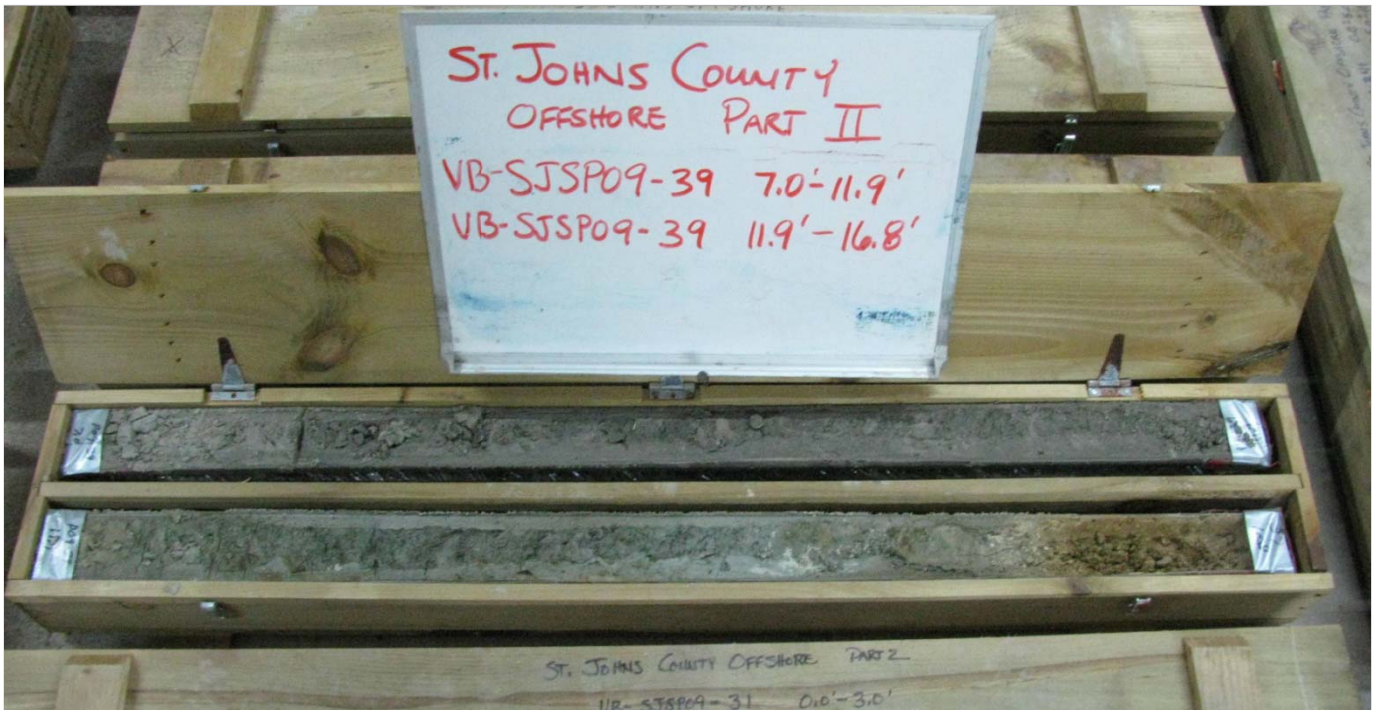 ST. JOHNS COUNTY
OFFSHORE PART II
VB-SJSP09-39 7.0'-11.9'
VB-SJSP09-39 11.9'-16.8'
ST. JOHNS COUNTY OFFSHORE PART 2
VB-SJSP09-31 0.0'-3.0'